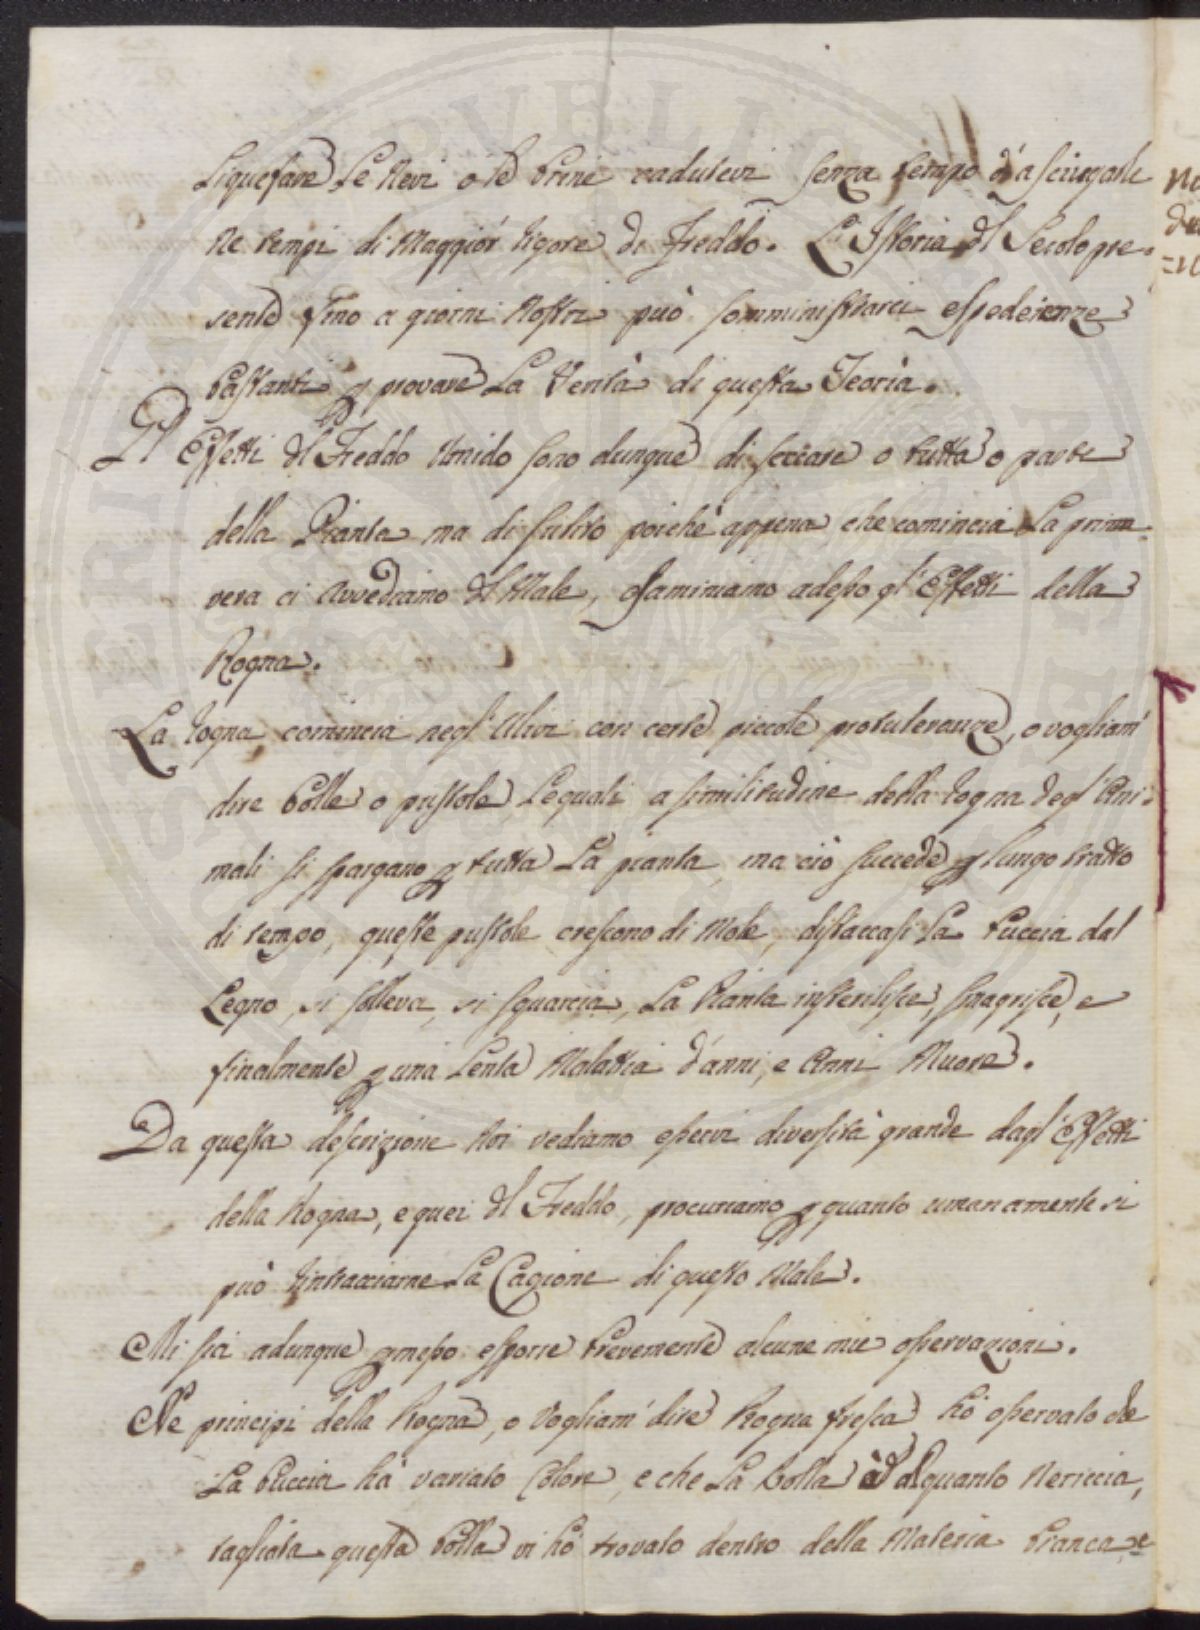 Liquefare Le Nevi o le Brine cadutevi senza tempo d'asciugarle
Ne tempi di Maggior rigore di Freddo. L'Istoria del Secolo pre-
sente fino a giorni Nostri può somministrarci espederienze
bastanti per provare La Verità di questa Teoria.
Gl'Effetti del Freddo Umido sono dunque di seccare o tutta o parte
della Pianta ma di subito poiché appena che comincia La prima-
vera ci Avvediamo del Male, esaminiamo adesso gl'Effetti della
Rogna.
La rogna comincia negl'Ulivi con certe piccole protuberanze, o vogliam'
dire bolle o pustole, Le quali a similitudine della rogna degl'Ani-
mali si spargano per tutta La pianta, ma ciò succede per lungo tratto
di tempo, queste pustole crescono di Mole, distaccasi La buccia dal
Legno, si solleva, si squarcia, La Pianta insterilisce, smagrisce, e
finalmente per una Lenta Malattia d'anni, e Anni Muore.
Da questa descrizione Noi vediamo esservi diversità grande dagl'Effetti
della Rogna, e quei del Freddo, procuriamo per quanto umanamente si
può rintracciarne La Cagione di questo Male.
Mi sia adunque permesso esporre brevemente alcune mie osservazioni.
Ne principj della Rogna, o Vogliam' dire Rogna fresca hò osservato che
La buccia hà variato Colore, e che La bolla è alquanto Nericcia,
tagliata questa bolla vi hò trovato dentro della Materia bianca, e
PVBLIC